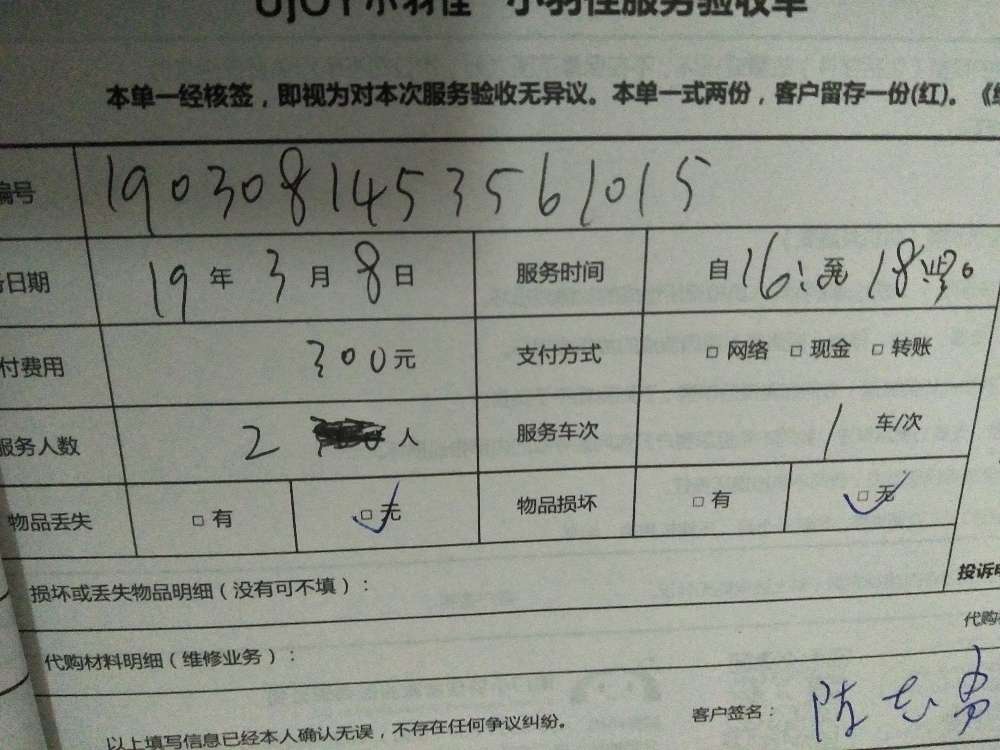 UJOY小羽佳 小羽佳服务验收单
本单一经核签，即视为对本次服务验收无异议。本单一式两份，客户留存一份(红)。《
编号 190308145356 1015
日期 19年3月8日 服务时间 自16: 至18:30
付费用 300元 支付方式 □ 网络 □ 现金 □ 转账
服务人数 2 人 服务车次 1 车/次
物品丢失 □ 有 □ 无 物品损坏 □ 有 □ 无
损坏或丢失物品明细（没有可不填）：
投诉
代购材料明细（维修业务）：
代购
客户签名：
以上填写信息已经本人确认无误，不存在任何争议纠纷。